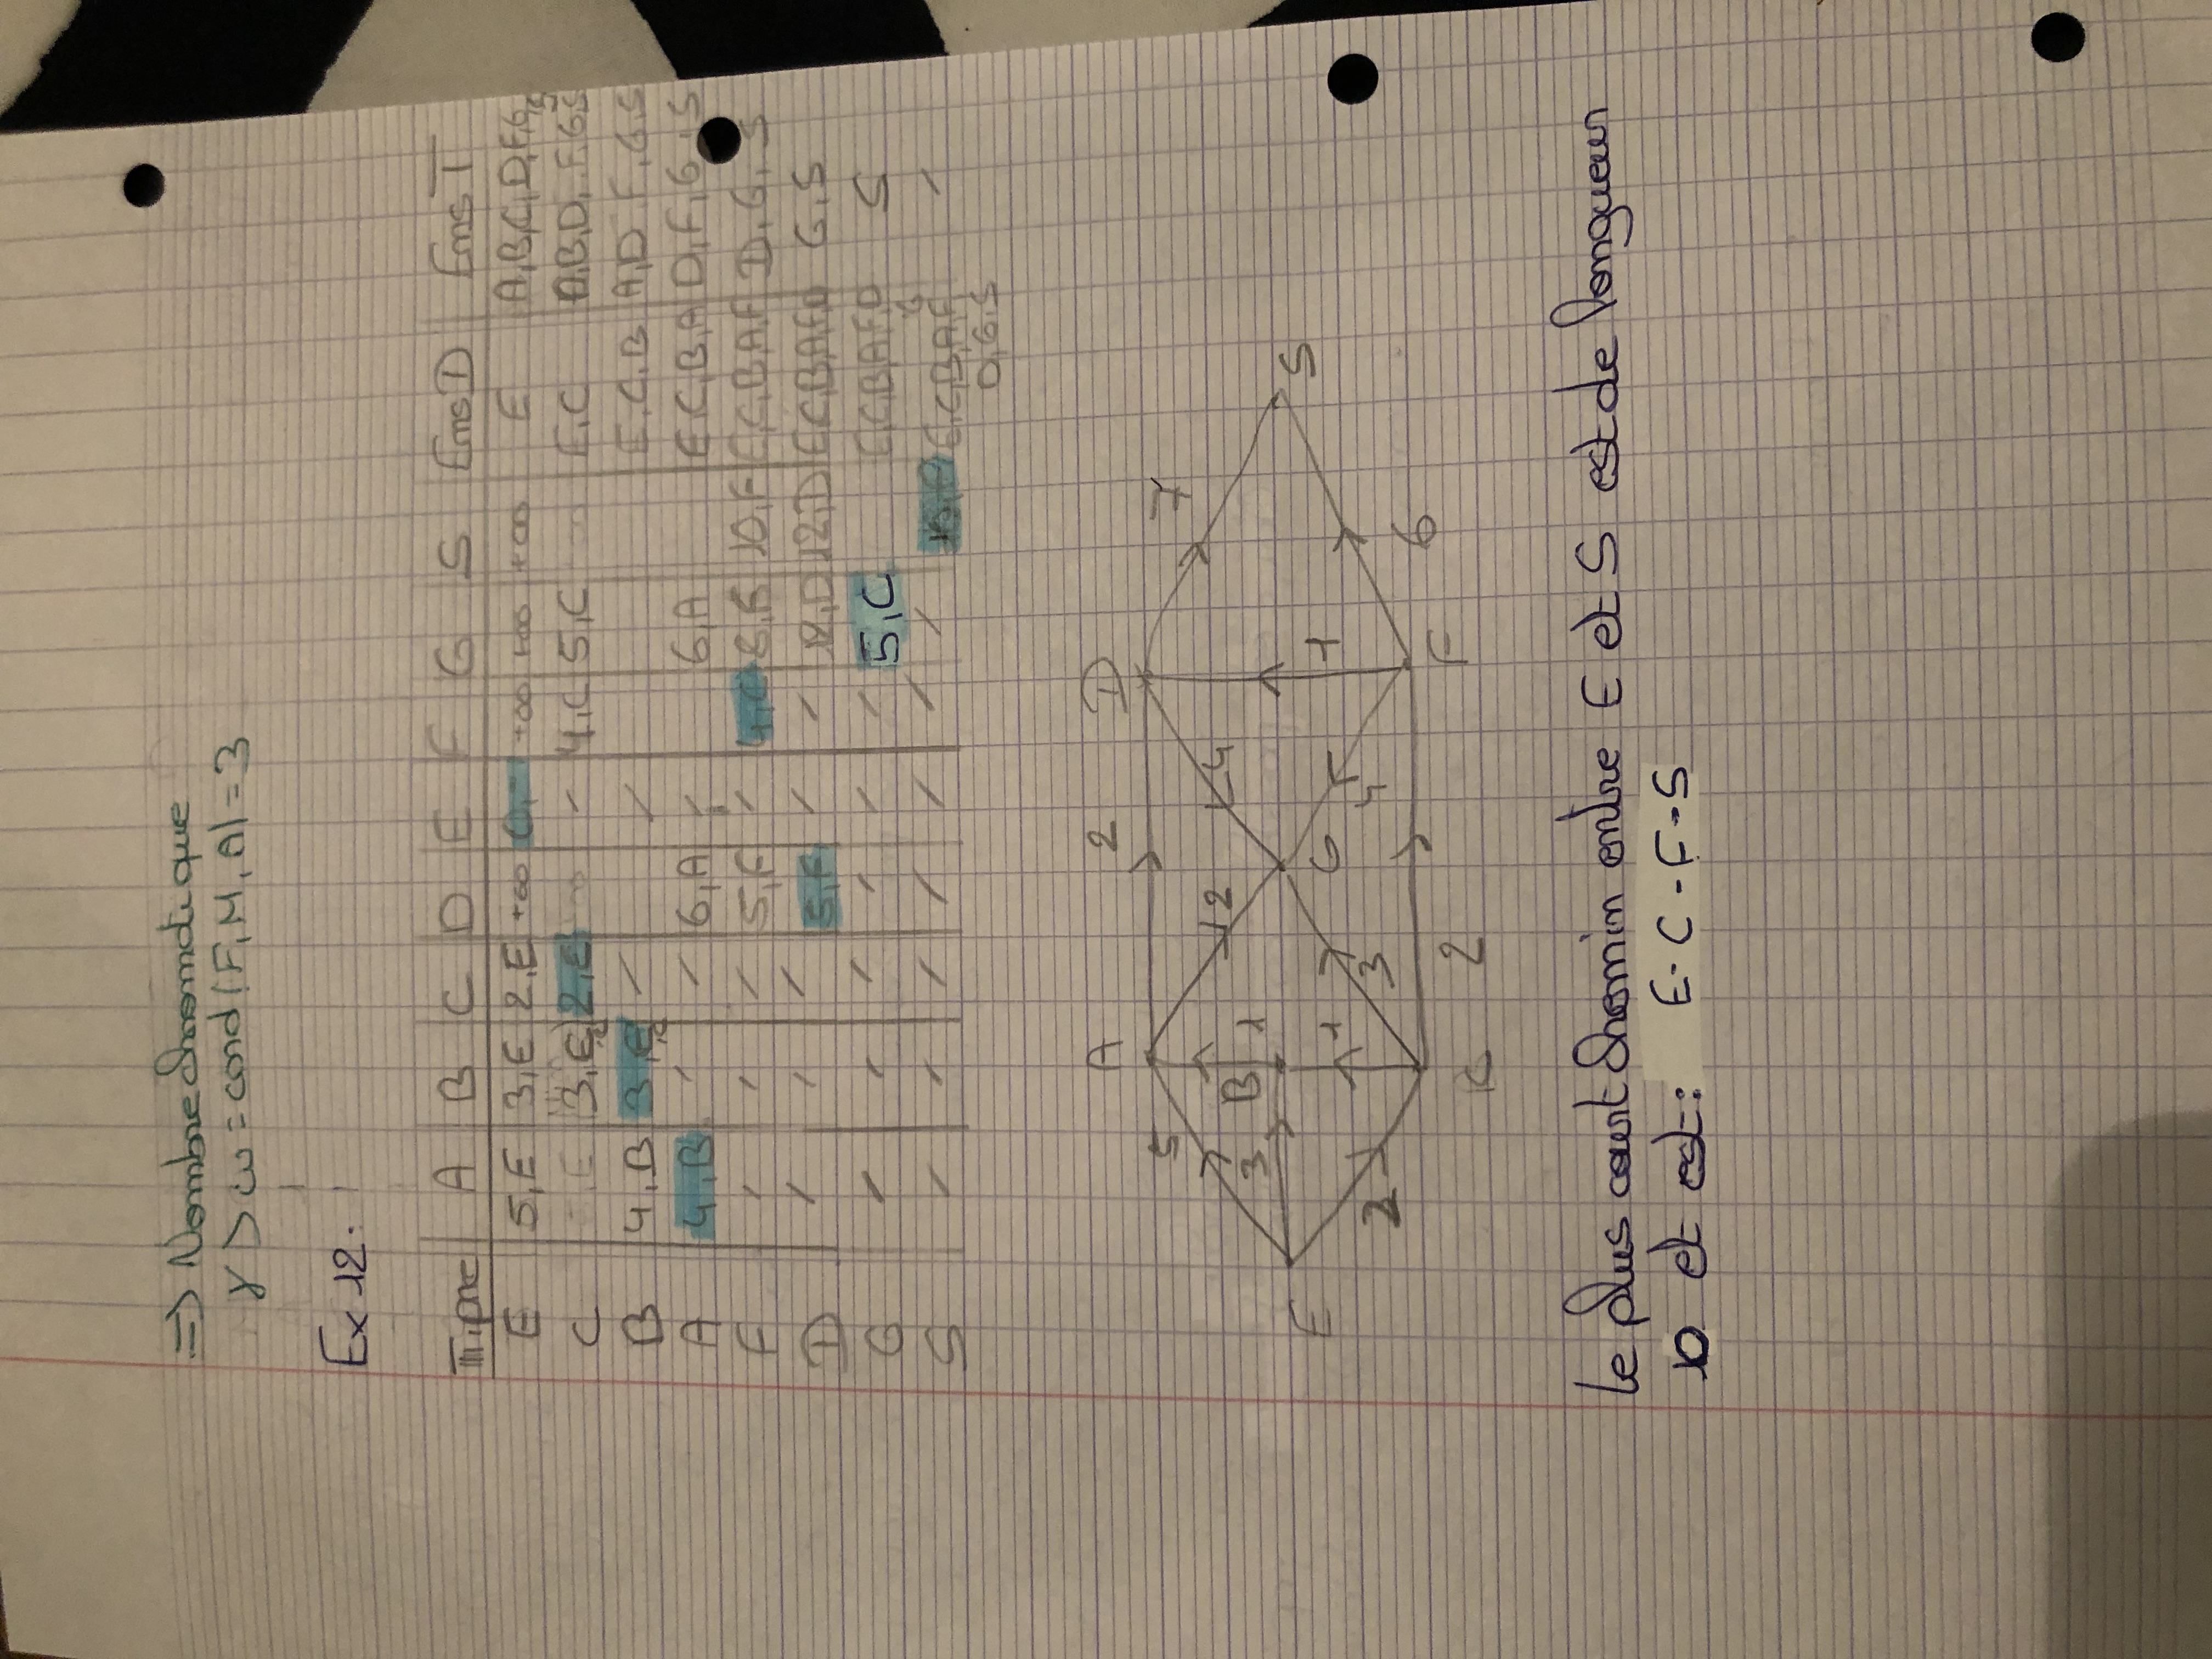 => Nombre Chromatique
γ > ω = card(F, M, A) = 3
Ex 12.
A B C D E F G S Ens D Ens T
E 5,E 3,E 2,E +∞ 0,- +∞ +∞ +∞ E A,B,C,D,F,G,S
C 3,E,C 2,E - 4,C 5,C E,C A,B,D, F,G,S
B 4,B 3,E,C / / E.C.B A,D F,G,S
A 4,B / / 6,A / 6,A E,C,B,A D,F,G,S
F / / / 5,F / 4,C 10,F E,C,B,A,F D,G,S
D / / / 5,F / / 12,D E,C,B,A,F,D G,S
G / / / / / / 5,C E,C,B,A,F,D G S
S / / / / / / / 10,F E,C,B,A,F /
D,G,S
A 2 D
5 7
B 1 2 4
3
E G S
1 1
2 3 4
6
C 2 F
le plus court Chemin entre E et S est de longueur
10 et est: E - C - F - S